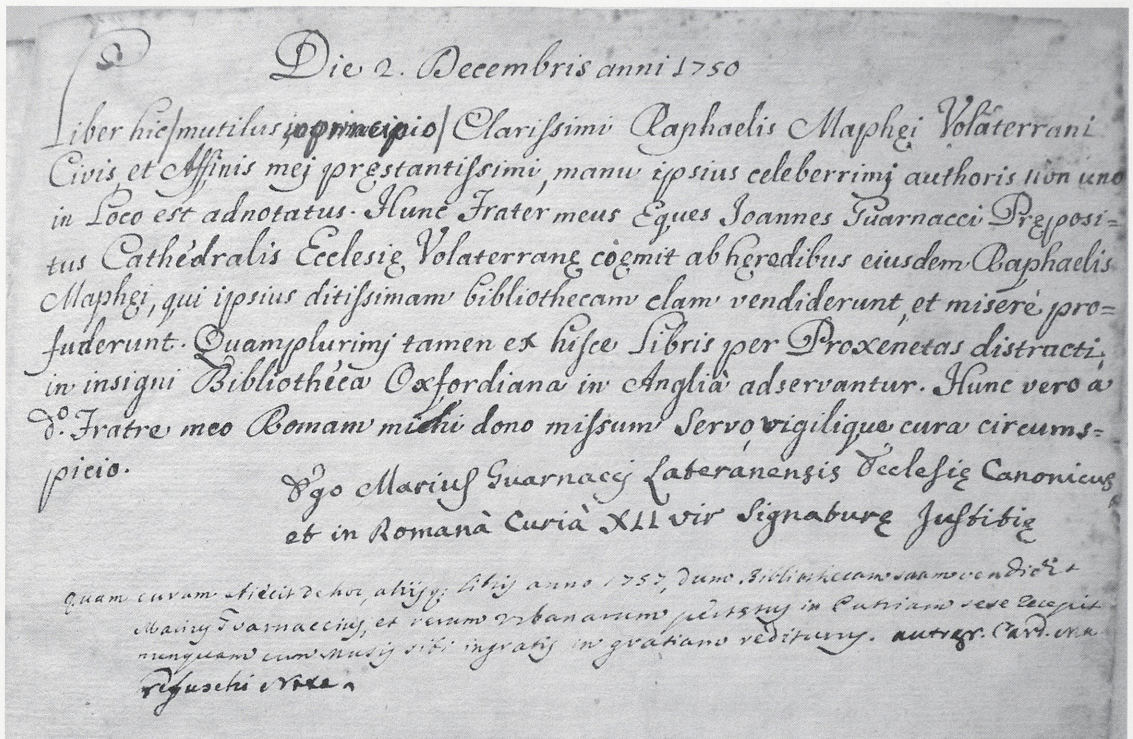 Die 2. Decembris anni 1750
Liber hic/mutilus in principio/ Clarissimi Raphaelis Maphęi Volaterrani
Civis et Affinis mei pręstantissimi, manu ipsius celeberrimj authoris non uno
in Loco est adnotatus. Hunc Frater meus Eques Joannes Guarnacci Pręposi=
tus Cathedralis Ecclesię Volaterranę coęmit ab hęredibus eiusdem Raphaelis
Maphęi, qui ipsius ditissimam bibliothecam clam vendiderunt, et miserè pro=
fuderunt. Quamplurimj tamen ex hisce Libris per Proxenetas distracti,
in insigni Bibliothèca Oxfordiana in Anglià adservantur. Hunc vero à
d.º Fratre meo Romam michi dono missum servo, vigilique cura circums=
picio.
Ego Marius Guarnaccj Lateranensis Ecclesię Canonicus
et in Romanà Curià XLL vir Signaturę Justitię
Quam curam abiecit de hoc, alijsq; libris anno 1757, dum Bibliothecam suam vendidit
Marius Guarnaccius, et rerum urbanarum pertęsus in Patriam sese recepit
nunquam cum musis sibi ingratis in gratiam rediturus. autogr. Card.